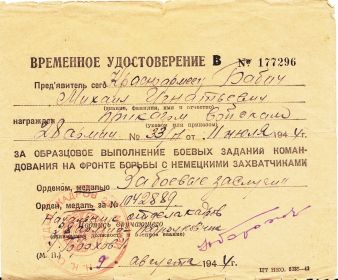 ВРЕМЕННОЕ УДОСТОВЕРЕНИЕ В № 177296
Пред'явитель сего Красноармеец Бабич
Михаил Игнатьевич
(звание, фамилия, имя и отчество)
награжден приказом Войскам
28 армии № 33/н от июня 194
(указом или приказом)
ЗА ОБРАЗЦОВОЕ ВЫПОЛНЕНИЕ БОЕВЫХ ЗАДАНИЙ КОМАН-
ДОВАНИЯ НА ФРОНТЕ БОРЬБЫ С НЕМЕЦКИМИ ЗАХВАТЧИКАМИ
Орденом, медалью За боевые заслуги
Орден, медаль за № 1042889
Начальник отдела кадров
28
(М. П.) 9 августа 194